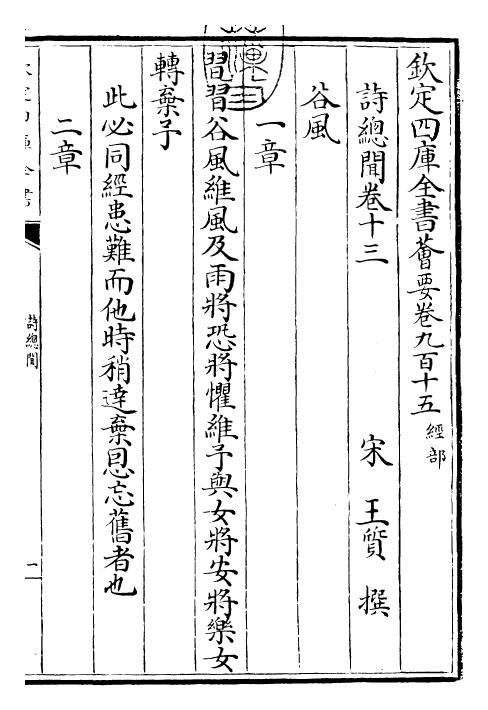 欽定四庫全書薈要卷九百十五 經部
詩總聞卷十三 宋 王質 撰
谷風
一章
習習谷風維風及雨將恐將懼維予與女將安將樂女
轉棄予
此必同經患難而他時稍達棄恩忘舊者也
二章
詩總聞